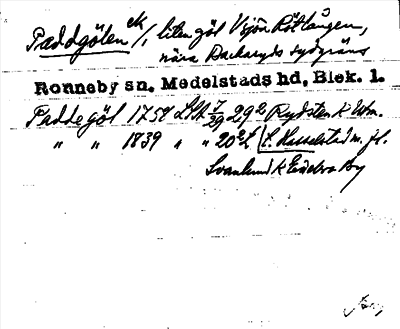 Paddgölen ek/, liten göl V sjön Rötlången,
nära Backaryds sydgräns
Ronneby sn. Medelstads hd, Blek. l.
Paddegöl 1758 LSA 7/29 29² Rydsten k Wm.
" " 1839 " " 20² L. Hasselstad m. fl.
Svanlund k Enderaby